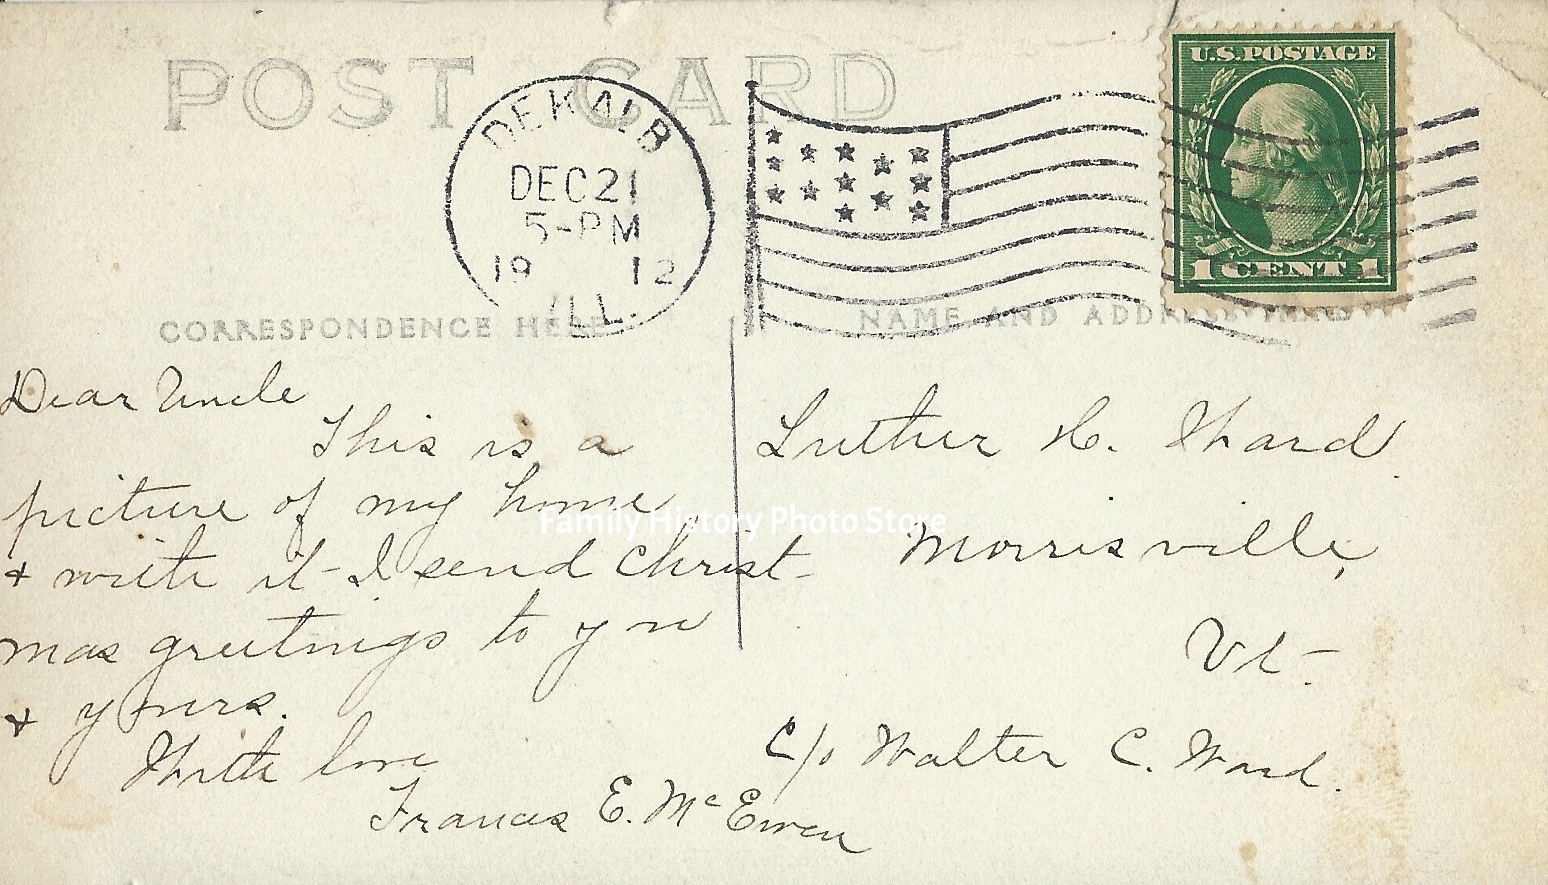 POST CARD
DEKALB
DEC 21
5-PM
19 12
ILL.
U.S. POSTAGE
1 CENT 1
CORRESPONDENCE HERE
NAME AND ADDRESS HERE
Dear Uncle
This is a
picture of my home
+ with it I send Christ-
mas greetings to you
+ yours.
With love
Frances E. McEwen
Luther H. Ward
Morrisville,
Vt.
c/o Walter C. Ward.
Family History Photo Store